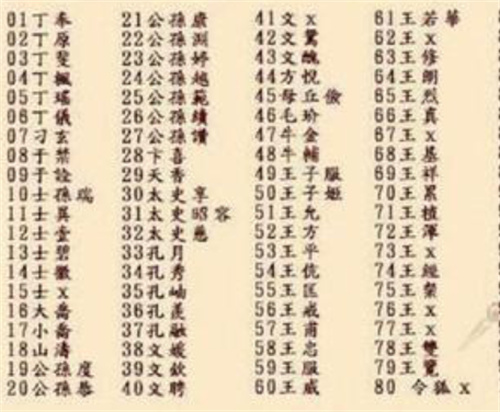 01丁奉
02丁原
03丁斐
04丁楓
05丁瑤
06丁儀
07刁玄
08于禁
09于詮
10士孫瑞
11士異
12士壹
13士碧
14士徽
15士x
16大喬
17小喬
18山濤
19公孫度
20公孫恭
21公孫康
22公孫淵
23公孫婷
24公孫越
25公孫範
26公孫續
27公孫讚
28卞喜
29天香
30太史享
31太史昭容
32太史慈
33孔月
34孔秀
35孔岫
36孔羨
37孔融
38文媛
39文欽
40文聘
41文x
42文鴛
43文醜
44方悅
45毋丘儉
46毛玠
47牛金
48牛輔
49王子服
50王子姬
51王允
52王方
53王平
54王伉
55王匡
56王戒
57王甫
58王忠
59王服
60王威
61王若華
62王x
63王修
64王朗
65王烈
66王真
67王x
68王基
69王祥
70王累
71王植
72王渾
73王x
74王經
75王粲
76王x
77王x
78王雙
79王覽
80 令狐x